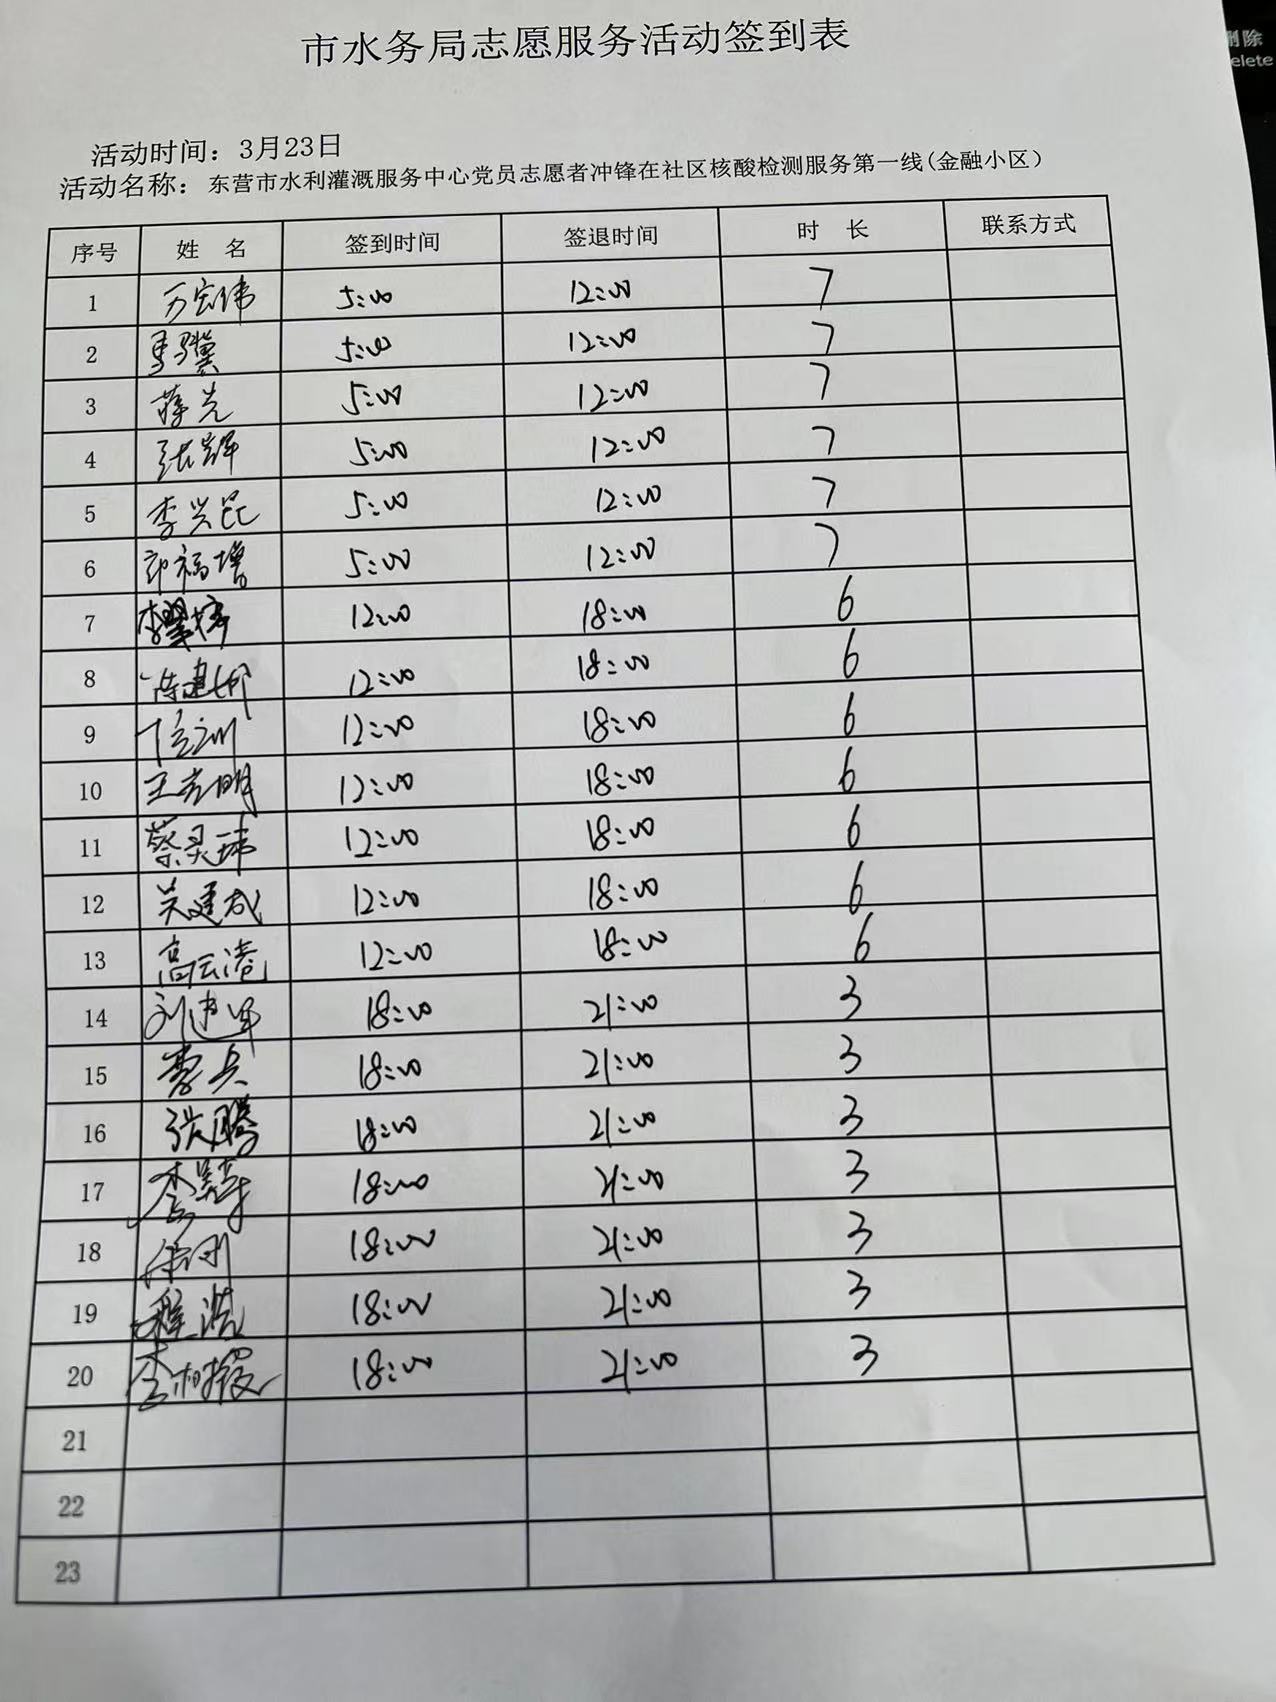 删除
elete
市水务局志愿服务活动签到表
活动时间：3月23日
活动名称：东营市水利灌溉服务中心党员志愿者冲锋在社区核酸检测服务第一线(金融小区)
序号 姓 名 签到时间 签退时间 时 长 联系方式
1 万宏伟 5:00 12:00 7
2 马骥 5:00 12:00 7
3 薛光 5:00 12:00 7
4 张辉 5:00 12:00 7
5 李兴昆 5:00 12:00 7
6 郭福增 5:00 12:00 7
7 12:00 18:00 6
8 12:00 18:00 6
9 12:00 18:00 6
10 王志明 12:00 18:00 6
11 蔡灵玮 12:00 18:00 6
12 吴建成 12:00 18:00 6
13 高云港 12:00 18:00 6
14 刘建军 18:00 21:00 3
15 18:00 21:00 3
16 张腾 18:00 21:00 3
17 18:00 21:00 3
18 徐刚 18:00 21:00 3
19 程浩 18:00 21:00 3
20 18:00 21:00 3
21
22
23